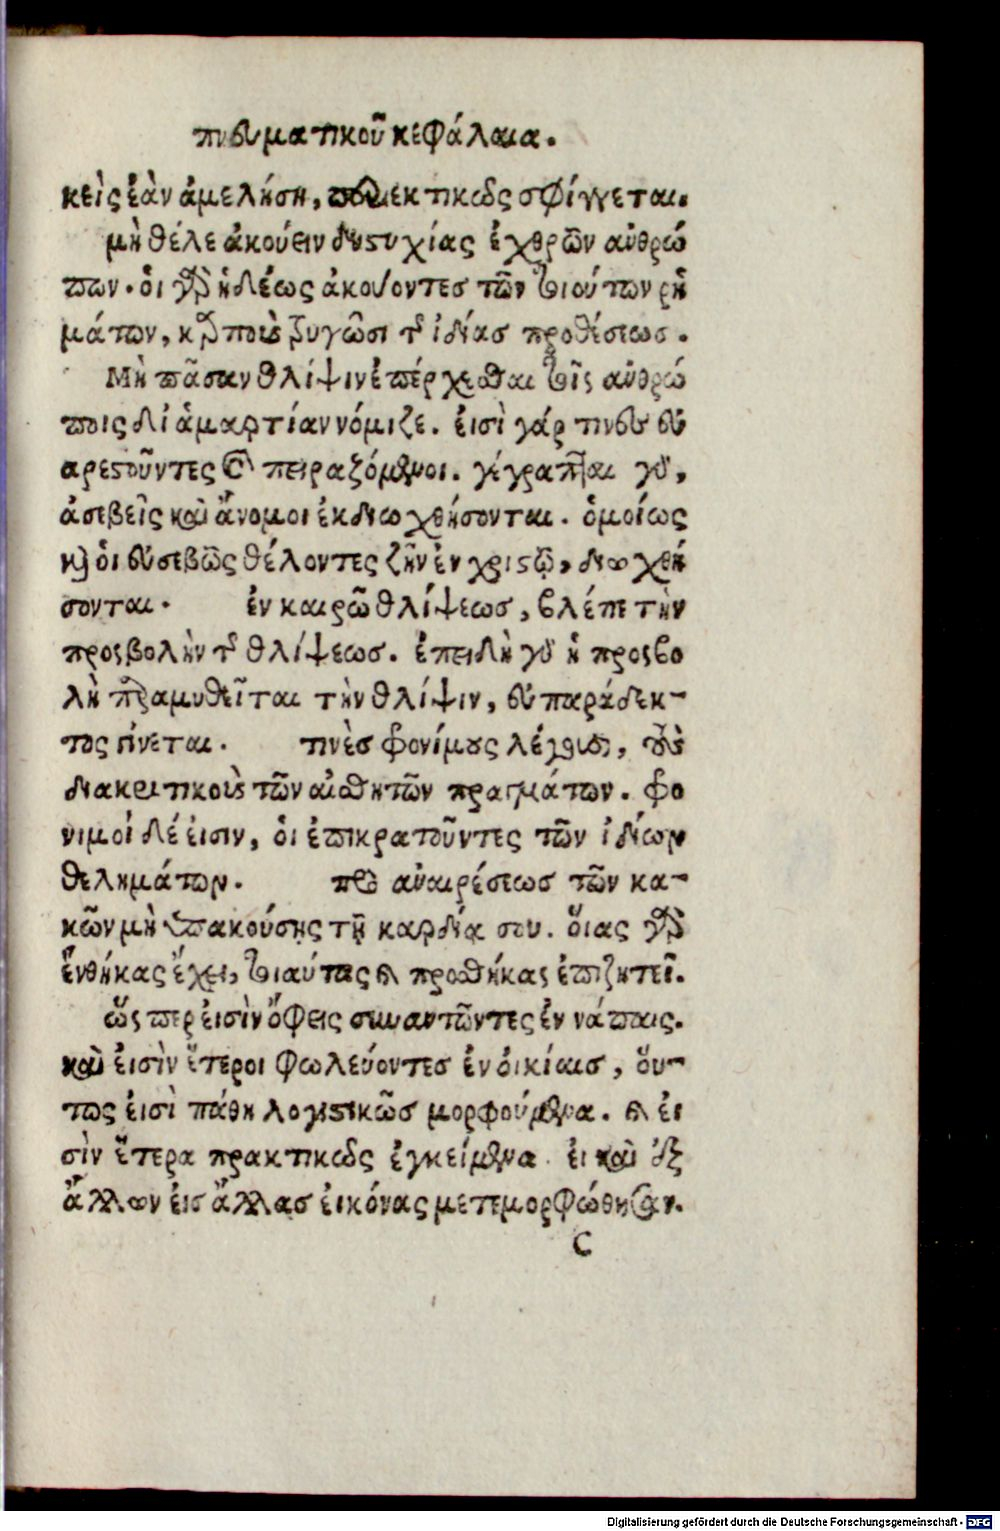 πνευματικοῦ κεφάλαια.
κεὶς ἐὰν ἀμελήσῃ, περιεκτικῶς σφίγγεται.
μὴ θέλε ἀκούειν δυστυχίας ἐχθρῶν ἀνθρώ
πων. οἱ γὰρ ἡδέως ἀκούοντες τῶν τοιούτων ῥη
μάτων, καρποὺς τρυγῶσι τῆς ἰδίας προθέσεως.
Μὴ πᾶσαν θλίψιν ἐπέρχεσθαι τοῖς ἀνθρώ
ποις δἰ ἁμαρτίαν νόμιζε. εἰσὶ γάρ τινες εὐ
αρεστοῦντες καὶ πειραζόμενοι. γέγραπται γὰρ,
ἀσεβεῖς καὶ ἄνομοι ἐκδιωχθήσονται. ὁμοίως
καὶ οἱ εὐσεβῶς θέλοντες ζῆν ἐν χριστῷ, διωχθή
σονται. ἐν καιρῶ θλίψεως, βλέπε τὴν
προσβολὴν τῆς θλίψεως. ἐπειδὴ γὰρ ἡ προσβο
λὴ παραμυθεῖται τὴν θλίψιν, εὐπαράδεκ-
τος γίνεται. τινὲς φρονίμους λέγουσι, τοὺς
διακριτικοὺς τῶν αἰσθητῶν πραγμάτων. φρό
νιμοι δέ εἰσιν, οἱ ἐπικρατοῦντες τῶν ἰδίων
θελημάτων. πρὸ ἀναιρέσεως τῶν κα-
κῶν μὴ ὑπακούσῃς τῇ καρδίᾳ σου. οἵας γὰρ
ἐνθήκας ἔχει, τοιαύτας καὶ προσθήκας ἐπιζητεῖ.
ὥσπερ εἰσὶν ὄφεις συναντῶντες ἐν νάπαις.
καὶ εἰσὶν ἕτεροι φωλεύοντες ἐν οἰκίαις, οὕ-
τως εἰσὶ πάθη λογιστικῶς μορφούμενα. καὶ εἰ
σὶν ἕτερα πρακτικῶς ἐγκείμενα. εἰ καὶ ἐξ
ἄλλων εἰς ἄλλας εἰκόνας μετεμορφώθησαν.
C
Digitalisierung gefördert durch die Deutsche Forschungsgemeinschaft - DFG